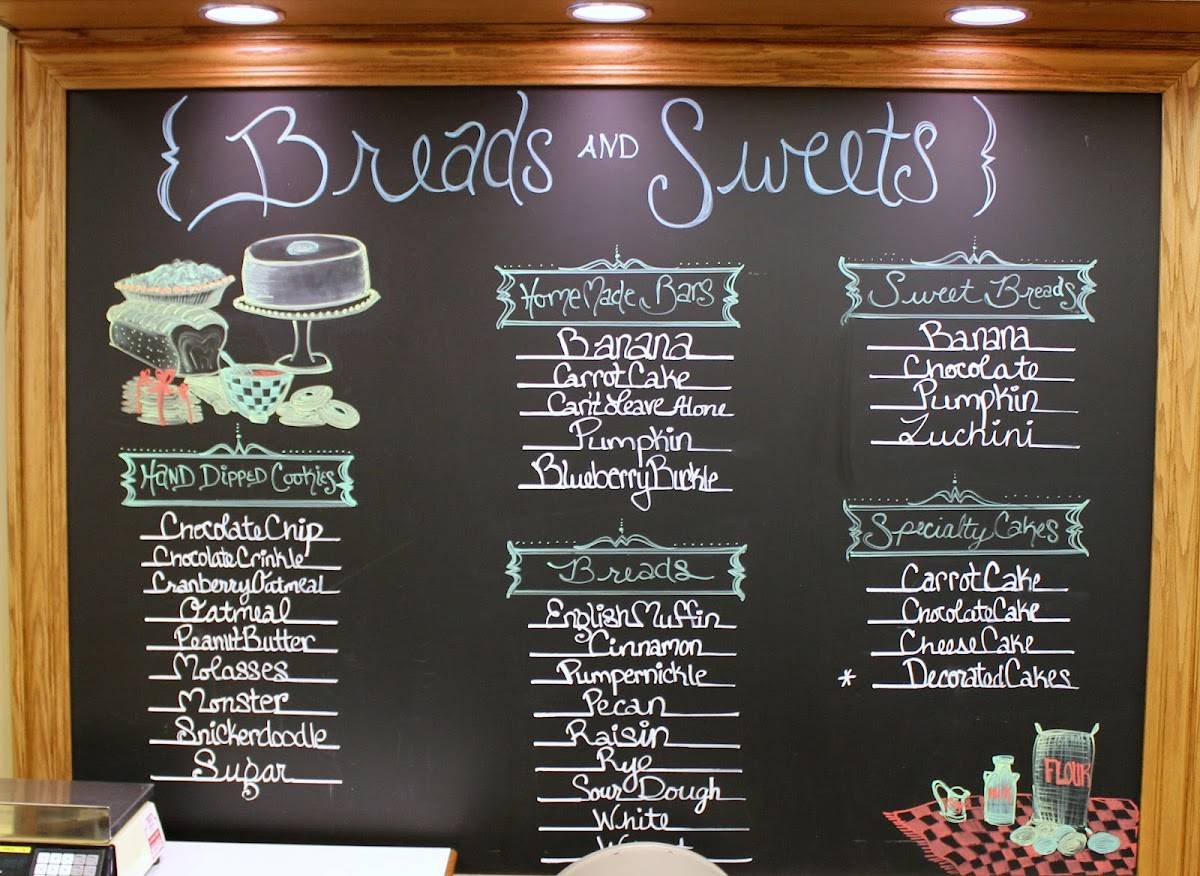 {Breads AND Sweets}
Hand Dipped Cookies
Chocolate Chip
Chocolate Crinkle
Cranberry Oatmeal
Oatmeal
Peanut Butter
Molasses
Monster
Snickerdoodle
Sugar
HomeMade Bars
Banana
Carrot Cake
Can't Leave Alone
Pumpkin
Blueberry Buckle
Breads
English Muffin
Cinnamon
Pumpernickle
Pecan
Raisin
Rye
Sour Dough
White
Sweet Breads
Banana
Chocolate
Pumpkin
Zuchini
Specialty Cakes
Carrot Cake
Chocolate Cake
Cheese Cake
* Decorated Cakes
FLOUR